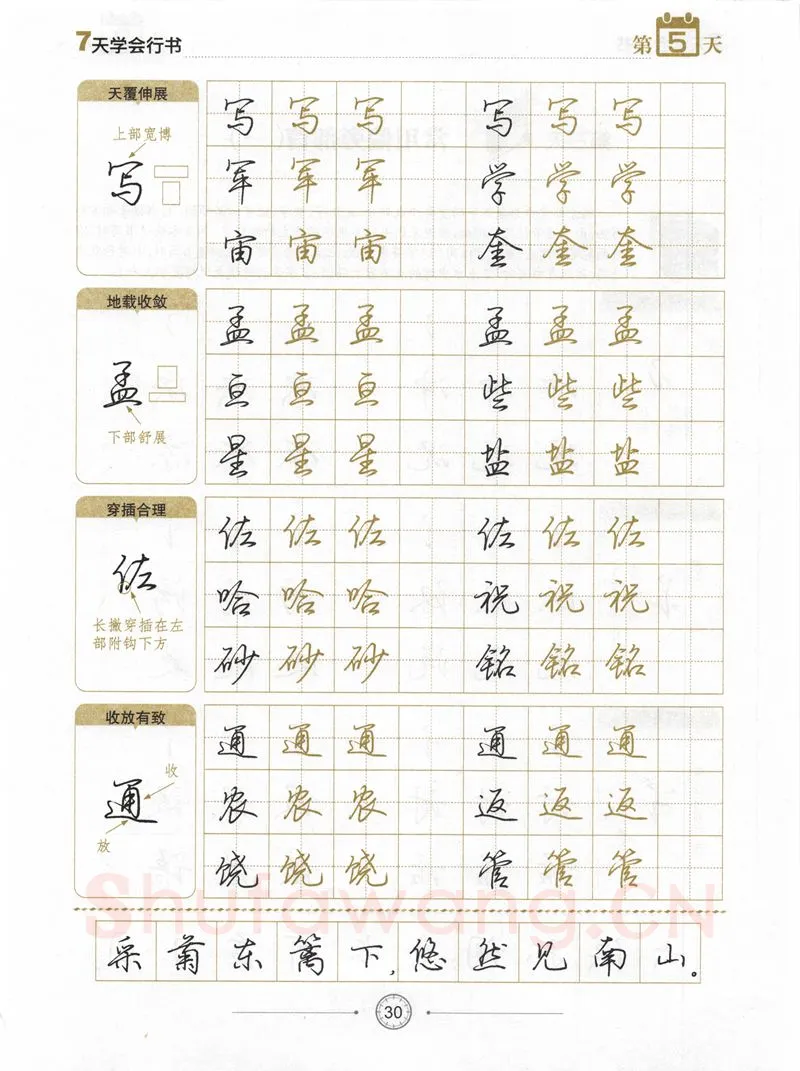 7天学会行书 第5天
天覆伸展
上部宽博
写
写 写 写 写 写 写
军 军 军 学 学 学
宙 宙 宙 奎 奎 奎
地载收敛
孟
下部舒展
孟 孟 孟 孟 孟 孟
亘 亘 亘 些 些 些
星 星 星 盐 盐 盐
穿插合理
佐
长撇穿插在左
部附钩下方
佐 佐 佐 佐 佐 佐
哈 哈 哈 祝 祝 祝
砂 砂 砂 铭 铭 铭
收放有致
收
通
放
通 通 通 通 通 通
农 农 农 返 返 返
饶 饶 饶 管 管 管
Shufawang.CN
采菊东篱下,悠然见南山。
30